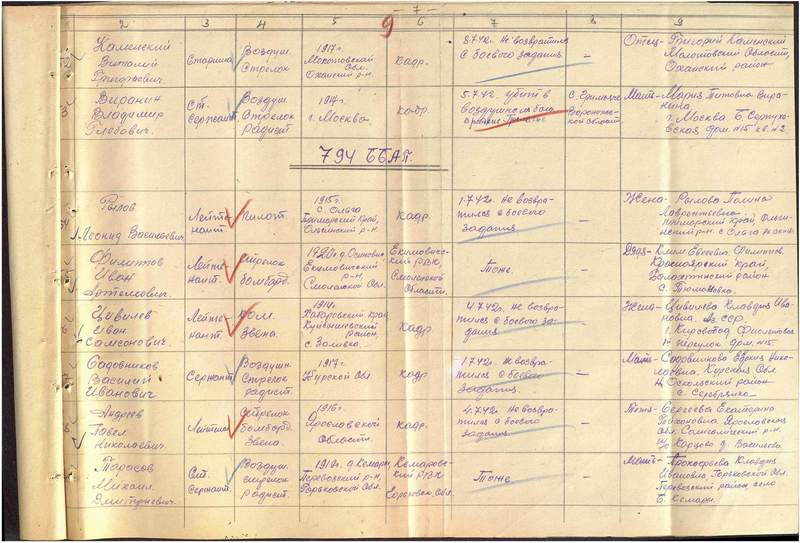 - 7 -
9
2 3 4 5 6 7 8 9
Каменский
Виталий
Григорьевич
Старшина
Воздуш.
Стрелок
1917г.
Молотовской
Обл.
Оханский р-н.
Кадр.
8.7.42г. Не возвратился
с боевого задания.
—
Отец- Григорий Каменский
Молотовской Область,
Оханский район
Воронин
Владимир
Глебович.
Ст.
Сержант
Воздуш
Стрелок
радист
1917г.
г. Москва.
кадр.
5.7.42г. Убит в
воздушном бою
Воронежской области
Мать- Мария Титовна
г. Москва Б. Серпуховская дом. №15 кв. №2
794 ББАП
Рылов
Леонид Васильевич
Лейтенант
Пилот.
1915г.
с. Ольга
Приморский край,
Ольгинский р-н.
Кадр.
1.7.42г. Не возвратился с боевого
задания.
—
Жена- Рылова Галина
Лаврентьевна
Приморский край, Ольгинский р-н. с. Ольга
Филиппов
Иван
Артемович.
Лейтенант.
Стрелок
бомбард.
1920г. д. Осиновка
Екимовичский р-н.
Смоленской Обл.
Екимовичский РВК,
Смоленской
Области.
Тоже.
—
Дядя-
Красноярский край,
район
с. Тюменевка.
Цивилев
Иван
Самсонович.
Лейтенант.
Ком.
Звена.
1914г.
Хабаровский край,
Куйбышевский
район,
Кадр.
4.7.42г. Не возвратился с боевого задания.
—
Жена- Цивилева Клавдия Ивановна. Аз. ССР
г. Кировобад, Фиолетова
дом. №15.
Садовников
Василий
Иванович
Сержант
Воздушн.
Стрелок
радист.
1917г.
Курская Обл.
Кадр.
1.7.42г. Не возвратился с боевого
задания.
—
Мать- Садовникова
Курская Обл.
Н. Оскольский район
Андреев
Павел
Николаевич.
Лейтенант
Стрелок
бомбард.
Звена
1916г.
Ярославской
Области.
Кадр.
4.7.42г. Не возвратился с боевого
задания.
—
Тетя- Сергеева Екатерина
Тихоновна Ярославской
Обл. Солигаличский р-н.
д. Васильева
Тарасов
Михаил
Дмитриевич.
Ст.
Сержант.
Воздуш.
стрелок
радист.
1919г. д. Кемары,
Перевозский р-н,
Горьковской Обл.
РВК
Тоже
—
Мать- Прокофьева Клавдия
Ивановна, Горьковской Обл.
Перевозский район, село
Б. Кемары.